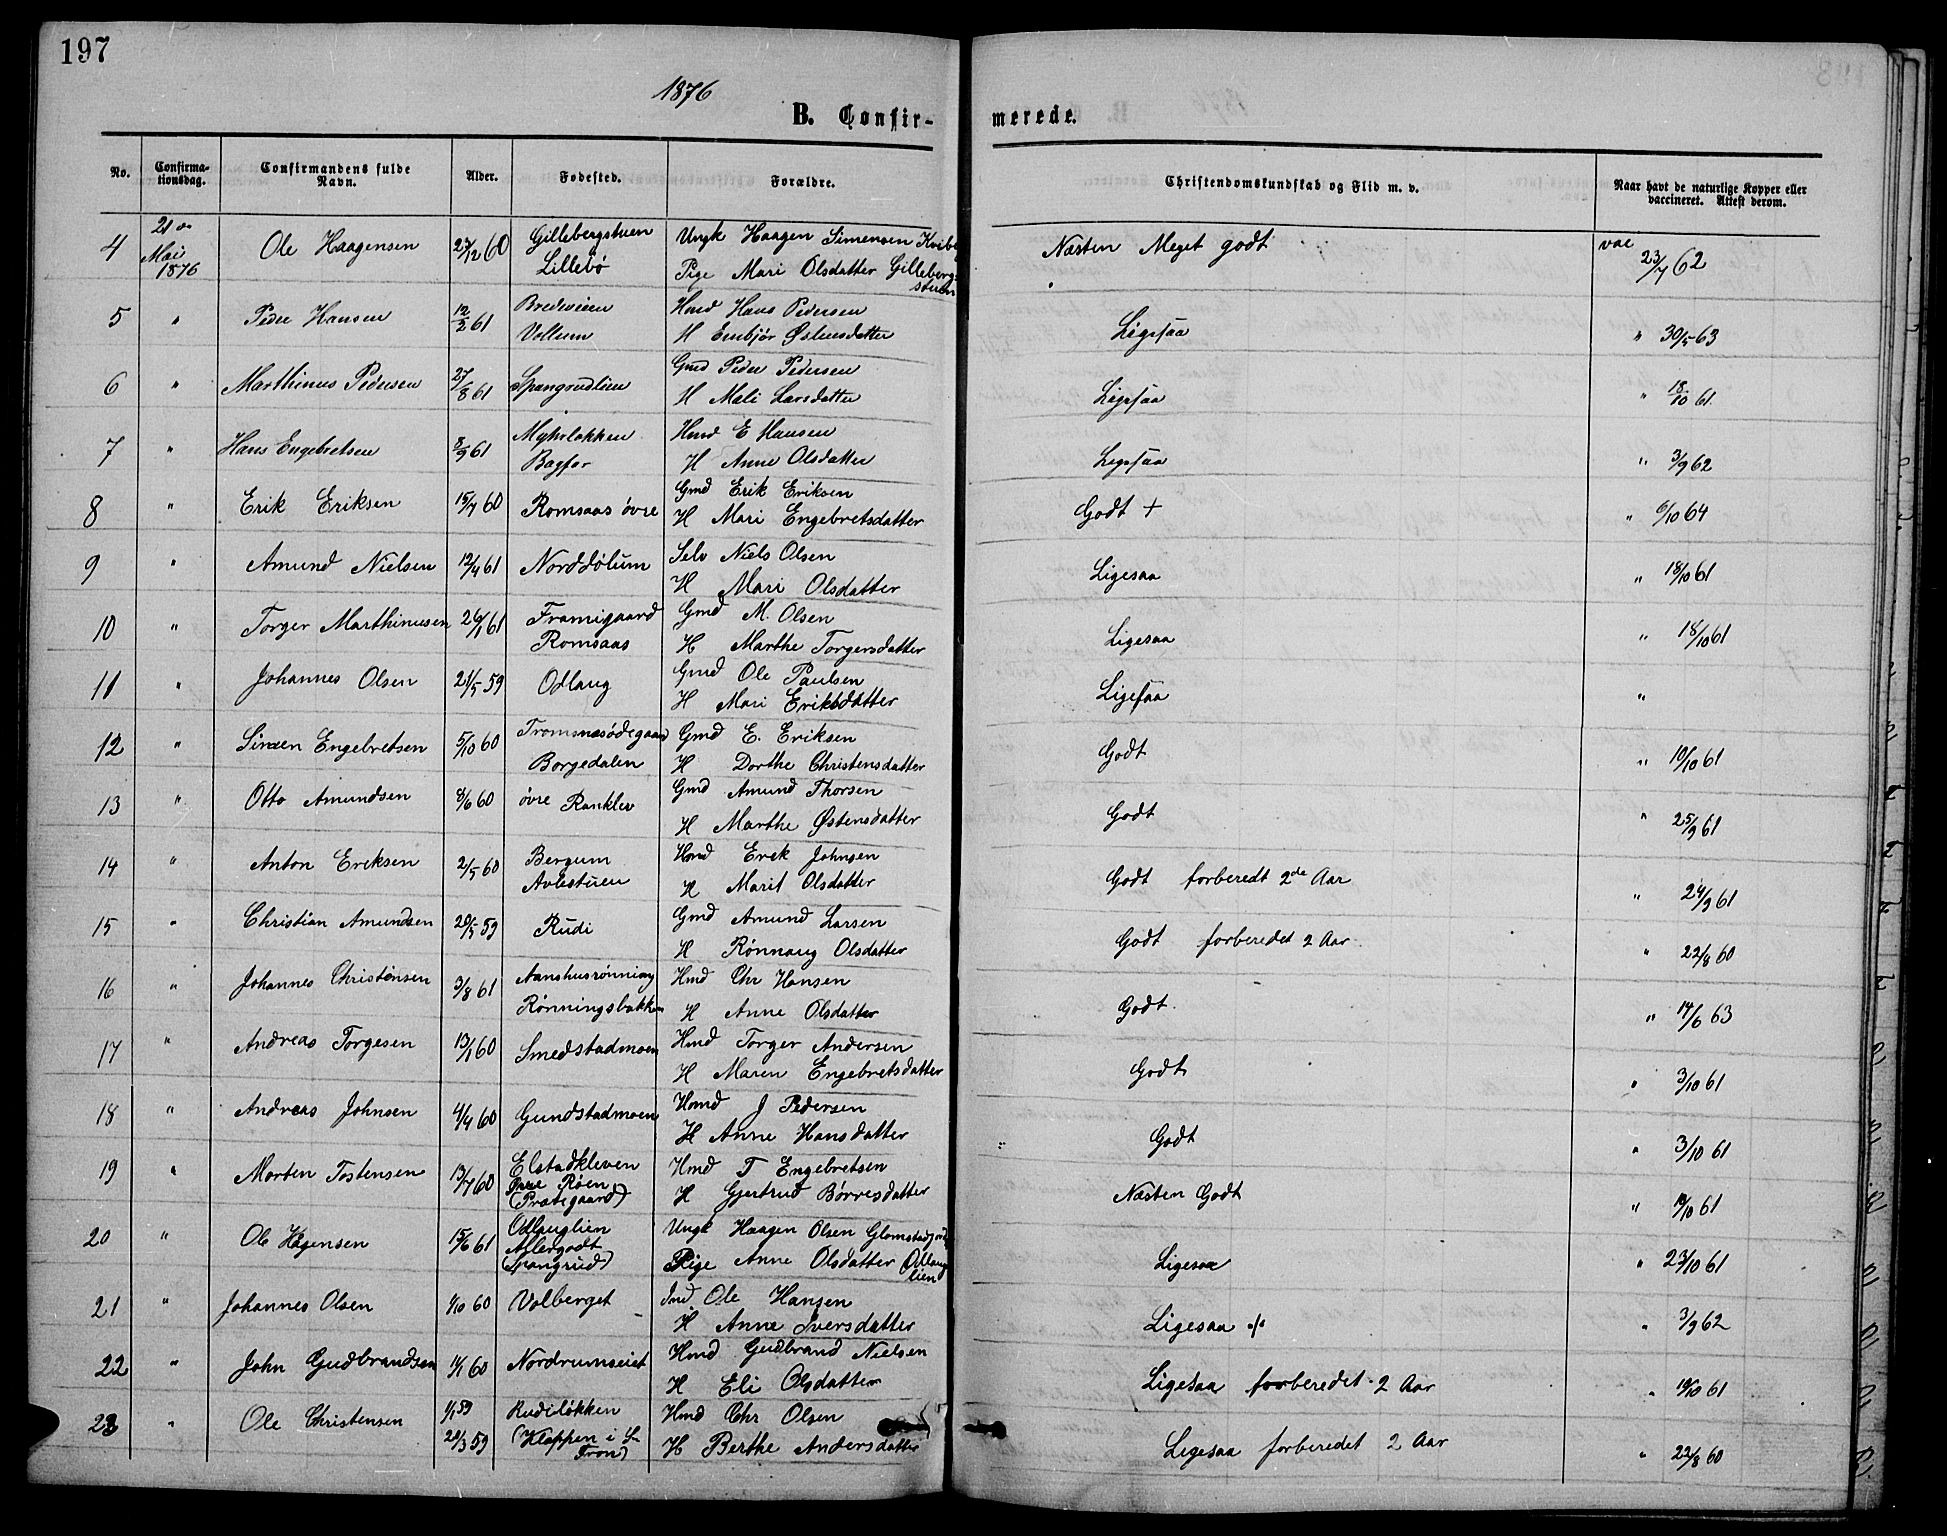 197
1876
B. Confir-
merede.
No.
Confirma-
tionsdag.
Confirmandens fulde
Navn.
Alder.
Fødested.
Forældre.
Christendomskundskab og Flid m. v.
Naar havt de naturlige Kopper eller
vaccineret. Attest derom.
4 21de Mai 1876 Ole Haagensen 23/12 60 Gillebergstuen Lillebø Ungk Haagen Simensen Pige Mari Olsdatter Gillebergstuen Næsten Meget godt vac 23/7 62
5 " Peder Hansen 12/2 61 Bredeveien Vollum Hmd Hans Pedersen H Embjør Østensdatter Ligesaa " 30/5 63
6 " Marthinus Pedersen 27/8 61 Spangrudlien Gmd Peder Pedersen H Mali Larsdatter Ligesaa " 18/10 61
7 " Hans Engebretsen 8/9 61 Myhrløkken Bagfor Hmd E Hansen H Anne Olsdatter Ligesaa " 3/9 62
8 " Erik Eriksen 15/7 60 Romsaas øvre Gmd Erik Eriksen H Mari Engebretsdatter Godt + " 6/10 64
9 " Amund Nielsen 12/4 61 Norddølum Selv Niels Olsen H Mari Olsdatter Ligesaa " 18/10 61
10 " Torger Marthinusen 26/1 61 Framigaard Romsaas Gmd M. Olsen H Marthe Torgersdatter Ligesaa " 18/10 61
11 " Johannes Olsen 21/5 59 Odlaug Gmd Ole Paulsen H Mari Eriksdatter Ligesaa "
12 " Simen Engebretsen 5/10 60 Tromsnæsødegaard Borgedalen Gmd E. Eriksen H Dorthe Christensdatter Godt " 10/10 61
13 " Otto Amundsen 8/6 60 øvre Ranklev Gmd Amund Thorsen H Marthe Østensdatter Godt " 25/9 61
14 " Anton Eriksen 2/5 60 Bergum Avlestuen Hmd Erik Johnsen H Marit Olsdatter Godt forberedt 2de Aar " 24/9 61
15 " Christian Amundsen 20/5 59 Rudi Gmd Amund Larsen H Rønnaug Olsdatter Godt forberedet 2 Aar " 22/8 60
16 " Johannes Christensen 3/8 61 Aanshusrønning Rønningsbakken Hmd Chr Hansen H Anne Olsdatter Godt " 14/6 63
17 " Andreas Torgesen 13/1 60 Smedstadmoen Hmd Torger Andersen H Maren Engebretsdatter Godt " 3/10 61
18 " Andreas Johnsen 4/4 60 Gundstadmoen Hmd J Pedersen H Anne Hansdatter Godt " 3/10 61
19 " Morten Tostensen 13/7 60 Elstadkleven Øvre Røen (Præstegaard) Hmd T Engebretsen H Gjertrud Børresdatter Næsten Godt " 10/10 61
20 " Ole Hågensen 15/6 61 Odlauglien (Spangrud) Ungk Haagen Olsen Pige Anne Olsdatter Odlauglien Ligesaa " 23/10 61
21 " Johannes Olsen 1/10 60 Volberget Ind Ole Hansen H Anne Iversdatter Ligesaa " 3/9 62
22 " John Gudbrandsen 11/1 60 Nordrumseiet Hmd Gudbrand Nielsen H Eli Olsdatter Ligesaa forberedet 2 Aar " 10/10 61
23 " Ole Christensen 1/1 59 20/3 59 Rudiløkken (Kloppen i S Fron) Hmd Chr Olsen H Berthe Andersdatter Ligesaa forberedet 2 Aar " 22/8 60